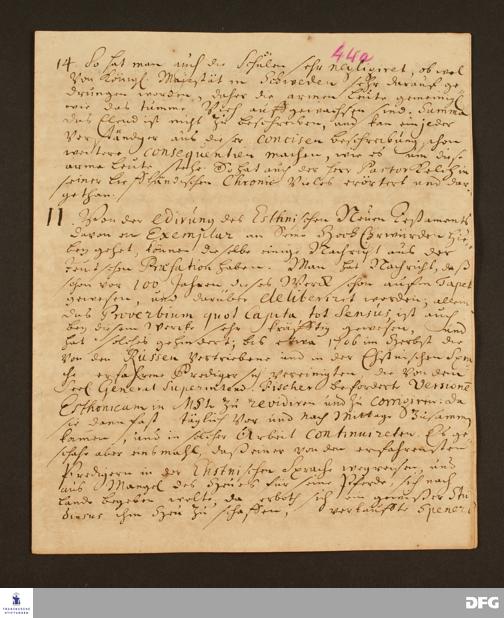 44a
14. So hat man auch die Schulen sehr negligiret, ob wol
von Königl. Majestät in Schweden sehr darauf ge
drungen worden, daher die armen Leute gemeinigl.
wie das tumme Vieh aufgewachsen sind. Summa
das Elend ist nicht zu beschreiben, und kan ein jeder
Verständiger aus dieser concisen beschreibung, schon
weitere consequentien machen, wie es um diese
arme Leute stehe. So hat auch der Herr Pastor Kelch in
seiner Liefländischen Chronic vieles erörtert und dar
gethan.
11 Von der edirung des Esthnischen Neuen Testaments
davon ein Exemplar an Seine HochEhrwürden hie
bey gehet, können dieselbe einige Nachricht aus der
teutschen Præfation haben. Man hat Nachricht, daß
schon vor 100 Jahren, dieses Werck schon aufm Tapet
gewesen, und darüber deliberiret worden, allein
das Proverbium quot capita tot sensus, ist auch
bey diesem Wercke sehr kräfftig gewesen, und
hat solches gehindert, bis etwa 1706 im Herbst die
von den Russen vertriebene und in der Ehstnischen Spra
che erfahrne Prediger sich vereinigten, die von dem
Seel. General Superintend. Fischer beforderte Version
Esthonicam in Mst. zu revidiren und zu corrigiren: da
sie denn fast täglich Vor und nach Mittage zusammen
kamen, und in solcher Arbeit continuireten. Es ge
schahe aber einsmahl, daß einer von den erfahrensten
Predigern in der Ehstnischen Sprache wegreisen, und
aus Mangel des Heues für seine Pferde, sich nach
Lande begeben wolte, da erboth sich ein gewisser Stu
diosus ihm Heu zu schaffen, verkauffte Speneri
FRANCKESCHE STIFTUNGEN
DFG